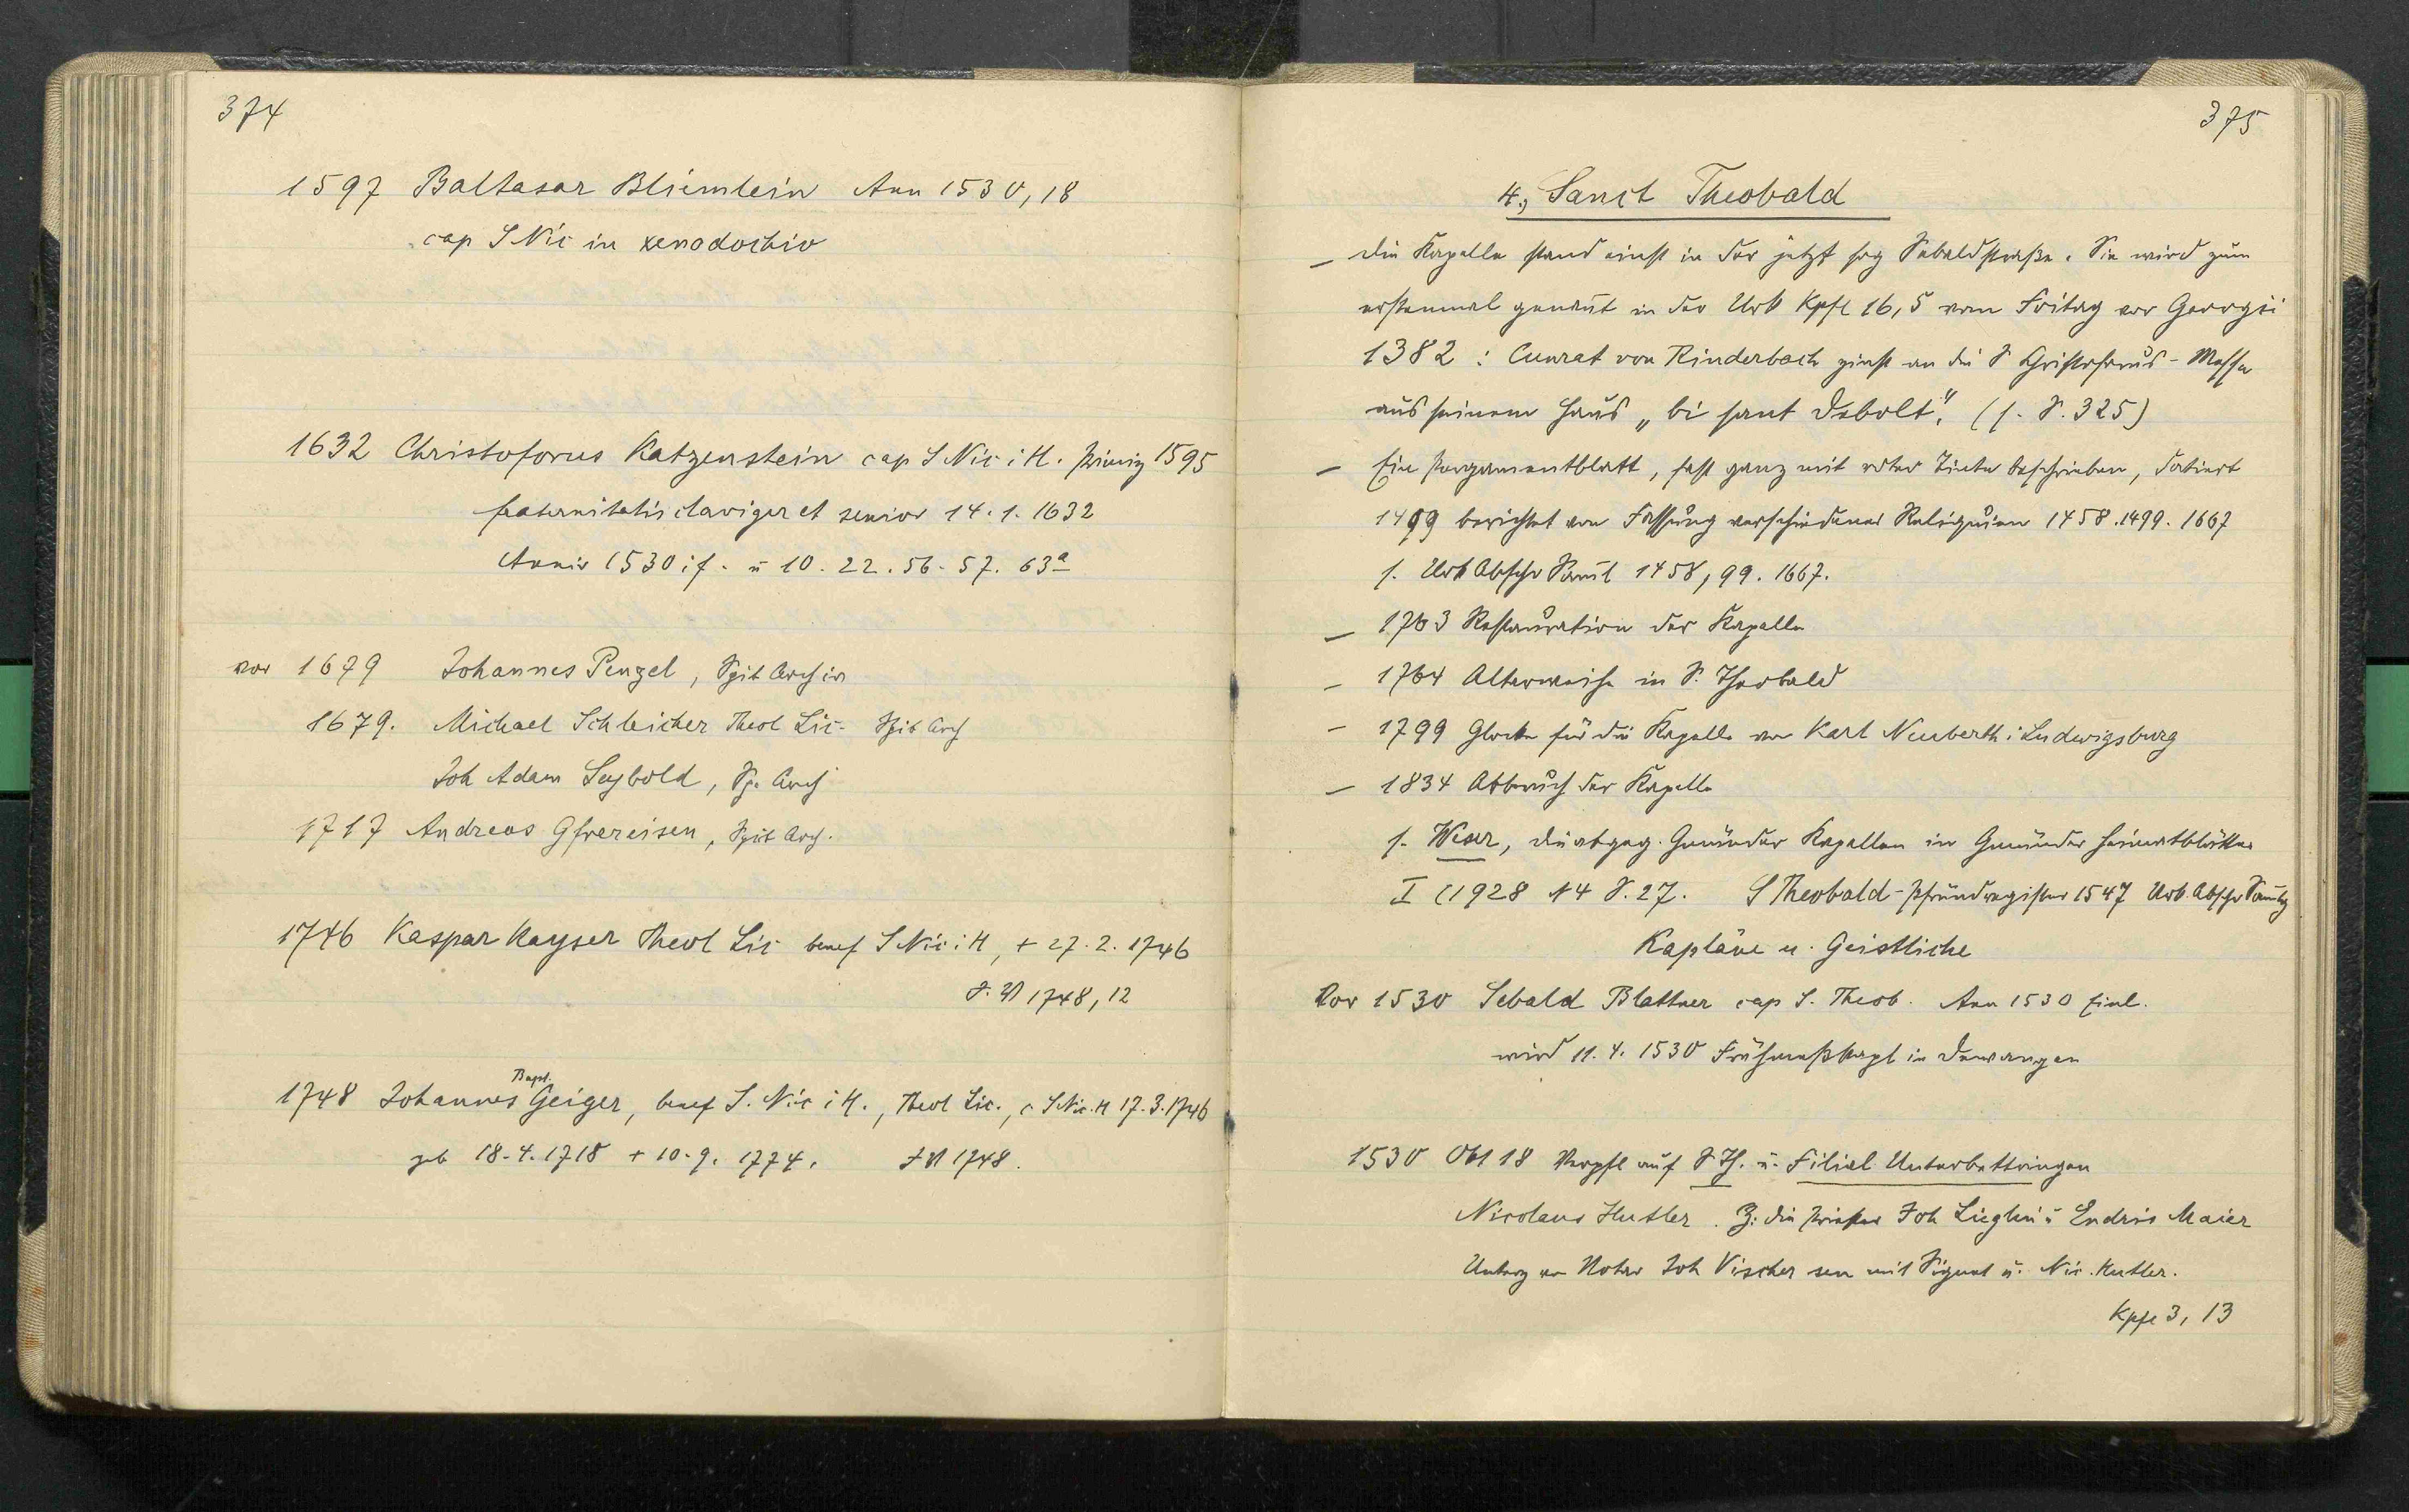 374
1597 Baltasar Bliemlein Ann 1530, 18
cap S Nic in xenodochio
1632 Christoforus Katzenstein cap S Nic i H. Primiz 1595
fraternitatis claviger et senior 14.1.1632
Anniv 1530 if. u 10. 22. 56. 57. 63a
vor 1679 Johannes Penzel, Spit Archiv
1679. Michael Schleicher Theol Lic. Spit Arch
Joh Adam Seybold, Sp. Arch
1717 Andreas Gfrereisen, Spit Arch.
1746 Kaspar Kayser Theol Lic benef S Nic i H, + 27.2.1746
1748, 12
1748 Johannes Bapt. Geiger, benef S. Nic i H., Theol Lic., c S Nic. H 17.3.1746
geb 18.4.1718 + 10.9.1774. 1748.
375
4., Sanct Theobald
– Die Kapelle stand einst in der jetzt sog Sebaldstraße. Sie wird zum
erstenmal genannt in der Urk Kpfl 16,5 vom Freitag vor Georgii
1382 : Cunrat von Rinderbach zinst an die S Christoforus-Messe
aus seinem Haus „bi sant Debolt". (s. S. 325)
– Ein Pergamentblatt, fast ganz mit roter Tinte beschrieben, datiert
1499 berichtet von Fassung verschiedener Reliquien 1458. 1499. 1667
s. Urk Abschr Saml 1458, 99. 1667.
– 1763 Restauration der Kapelle
– 1764 Altarweihe in S. Theobald
– 1799 Glocke für die Kapelle von Karl Neuberth i Ludwigsburg
– 1834 Abbruch der Kapelle
s. Weser, die abgeg. Gmünder Kapellen in Gmünder Heimatblätter
I (1928 N 4 S. 27. S Theobald-Pfründregister 1547 Urk. Abschr Samlg
Kapläne u. Geistliche
Vor 1530 Sebald Blattner cap S. Theob. Ann 1530 Einl.
wird 11.4.1530 Frühmeßkapl in Dewangen
1530 Okt 18 Verpfl auf S Th. u. Filial Unterbettringen
Nicolaus Kutler. Z: die Priester Joh Lieglin u Endris Maier
Unterz von Notar Joh Vischer sen mit Signet u. Nic. Kutler.
Kpfl 3, 13